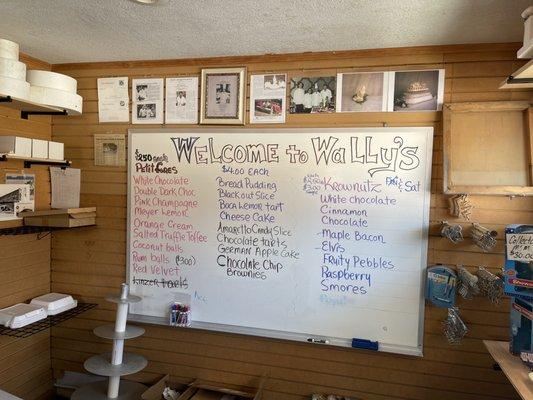 WELCOME to Wally's
$2.50 each
Petit fures
White Chocolate
Double Dark Choc
Pink Champagne
Meyer Lemon
Orange Creme
Salted Truffle Toffee
Coconut balls
Rum balls ($3.00)
Red Velvet
Linzer tarts
$4.00 EACH
Bread Pudding
Blackout Slice
Boca Lemon tart
Cheese Cake
Amaretto Candy Slice
Chocolate tarts
German Apple Cake
Chocolate Chip
Brownies
Fri & Sat
$3.00
Krownutz
White chocolate
Cinnamon
Chocolate
- Maple Bacon
- Elvis
Fruity Pebbles
Raspberry
Smores
$30.00